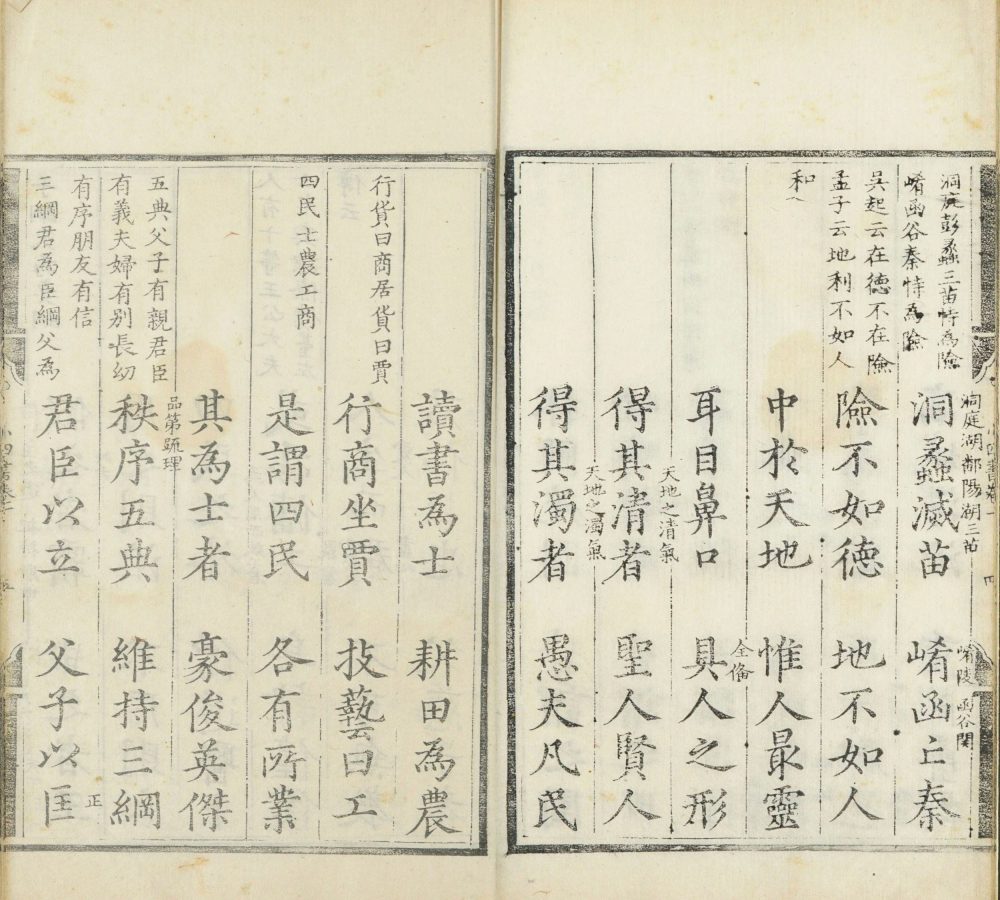 洞庭彭蠡三苗恃為險
崤函谷秦恃為險
吳起云在德不在險
孟子云地利不如人
和
洞庭湖鄱陽湖三苗
崤陵函谷関
洞蠡滅苗 崤函亡秦
險不如德 地不如人
中於天地 惟人最靈
全俻
耳目鼻口 具人之形
天地之清氣
得其清者 聖人賢人
天地之濁氣
得其濁者 愚夫凡民
行貨曰商居貨曰賈
四民士農工商
五典父子有親君臣
有義夫婦有別長幼
有序朋友有信
三綱君為臣綱父為
讀書為士 耕田為農
行商坐賈 技藝曰工
是謂四民 各有所業
其為士者 豪俊英傑
品第䟽理
秩序五典 維持三綱
正
君臣以立 父子以匡